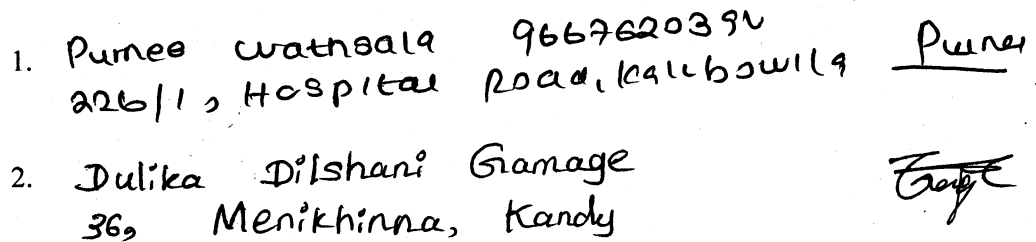 1. Purnee wathsala 966762039V Purnee
226/1, Hospital Road, Kalubowila
2. Dulika Dilshani Gamage
36, Menikhinna, Kandy